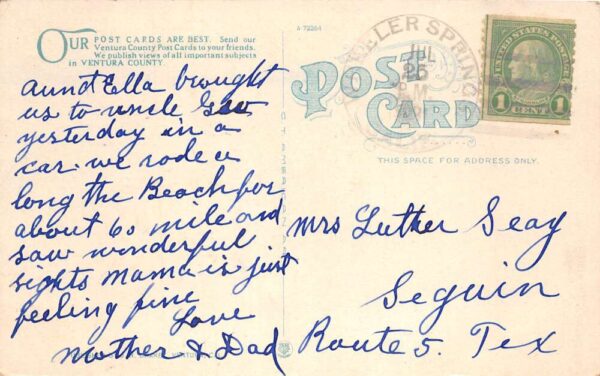 OUR POST CARDS ARE BEST. Send our
Ventura County Post Cards to your friends.
We publish views of all important subjects
in VENTURA COUNTY.
A-72264
POST
CARD
THIS SPACE FOR ADDRESS ONLY.
JUL
25
UNITED STATES POSTAGE
1 CENT 1
aunt Ella brought
us to uncle
yesterday in a
car. we rode a
long the Beach for
about 60 mile and
saw wonderful
sights Mama is just
feeling fine
Love
Mother & Dad
Mrs Luther Seay
Seguin
Route 5. Tex